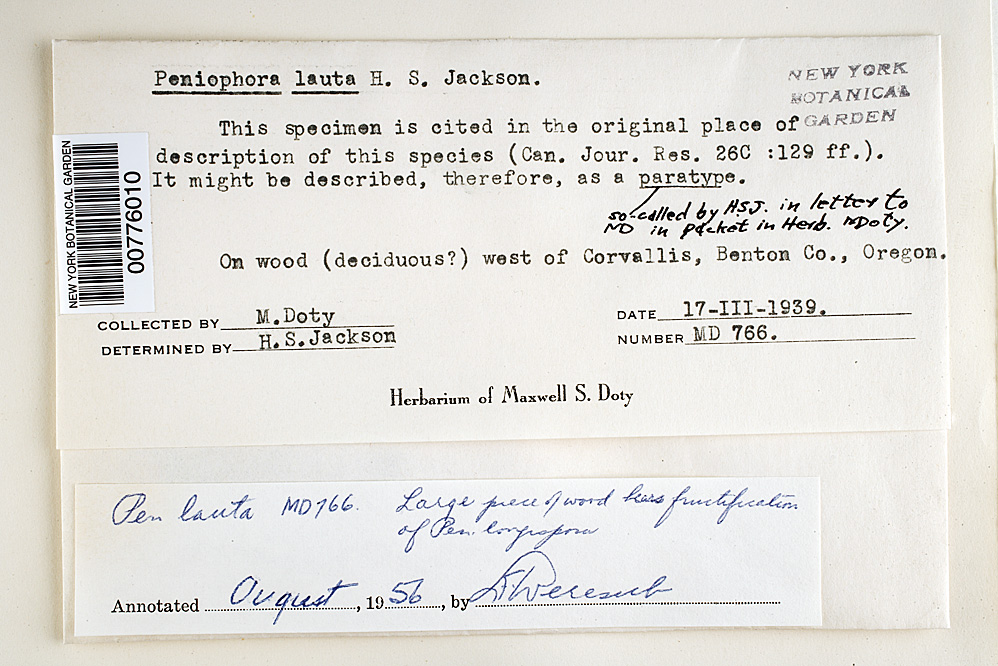 Peniophora lauta H. S. Jackson.
NEW YORK
BOTANICAL
GARDEN
This specimen is cited in the original place of
description of this species (Can. Jour. Res. 26C :129 ff.).
It might be described, therefore, as a paratype.
so-called by H.S.J. in letter to
MD in packet in Herb. MDoty.
On wood (deciduous?) west of Corvallis, Benton Co., Oregon.
NEW YORK BOTANICAL GARDEN
00776010
COLLECTED BY M.Doty
DETERMINED BY H.S.Jackson
DATE 17-III-1939.
NUMBER MD 766.
Herbarium of Maxwell S. Doty
Pen lauta MD766. Large piece of wood bears fructification
of Pen. longispora
Annotated August, 1956, by Weresub